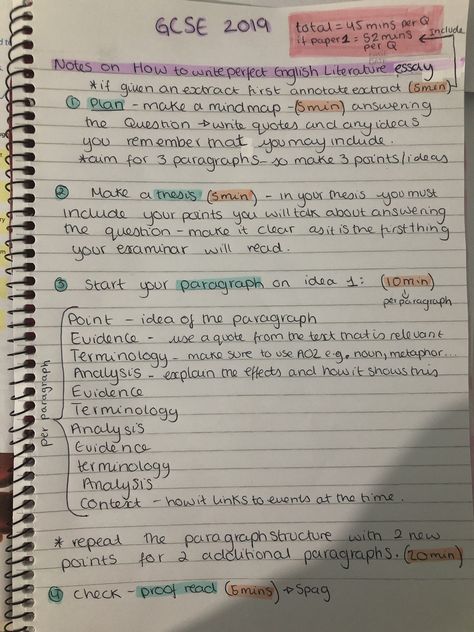 GCSE 2019
total = 45 mins per Q
if paper 1 = 52 mins
per Q
include
Notes on How to write perfect English Literature essay
*if given an extract first annotate extract (5min)
① Plan - make a mindmap - (5min) answering
the Question → write quotes and any ideas
you remember that you may include.
*aim for 3 paragraphs - so make 3 points/ideas
② Make a thesis (5min) - in your thesis you must
include your points you will talk about answering
the question - make it clear as it is the first thing
your examinar will read.
③ Start your paragraph on idea 1: (10min)
per paragraph
per paragraph
Point - idea of the paragraph
Evidence - use a quote from the text that is relevant
Terminology - make sure to use AO2 e.g. noun, metaphor...
Analysis - explain the effects and how it shows this
Evidence
Terminology
Analysis
Evidence
terminology
Analysis
Context - how it links to events at the time.
* repeat the paragraph structure with 2 new
points for 2 additional paragraphs. (20min)
④ Check - proof read (5mins) → Spag